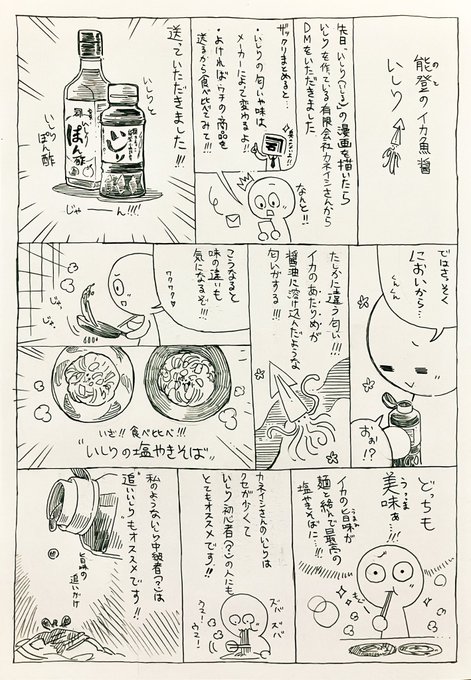 能登のイカ魚醤
のと
いしり
先日、いしり(いしる)の漫画を描いたら
いしりを作っている有限会社カネイシさんから
DMをいただきました
なんと!!
ザックリまとめると…
・いしりの匂いや味は
メーカーによって変わるよ!!
・よければウチの商品を
送るから食べ比べてみて!!!
送っていただきました!!
いしりと
いしり
ぽん酢
いしり
ぽん酢
じゃーん!!!!
ではさっそく
においから…
くんくん
おぉ!?
たしかに違う匂い!!!
イカのあたりめが
醤油に溶け込んだような
匂いがする!!!
こうなると
味の違いも
気になるぞ!!!
ワクワク
じゅ
じゅ
いざ!!食べ比べ!!!
“いしりの塩やきそば”
どっちも
美味ぁ…!!
うま
イカの旨味が
麺と絡んで最高の
塩やきそばに…!!
カネイシさんのいしりは
クセが少なくて
いしり初心者(?)の人にも
とてもオススメです!!
ズバ
ズバ
ウマー!ウマー!
私のようないしり中級者(?)は
“追いいしり”もオススメです!!
旨味の
追いがけ